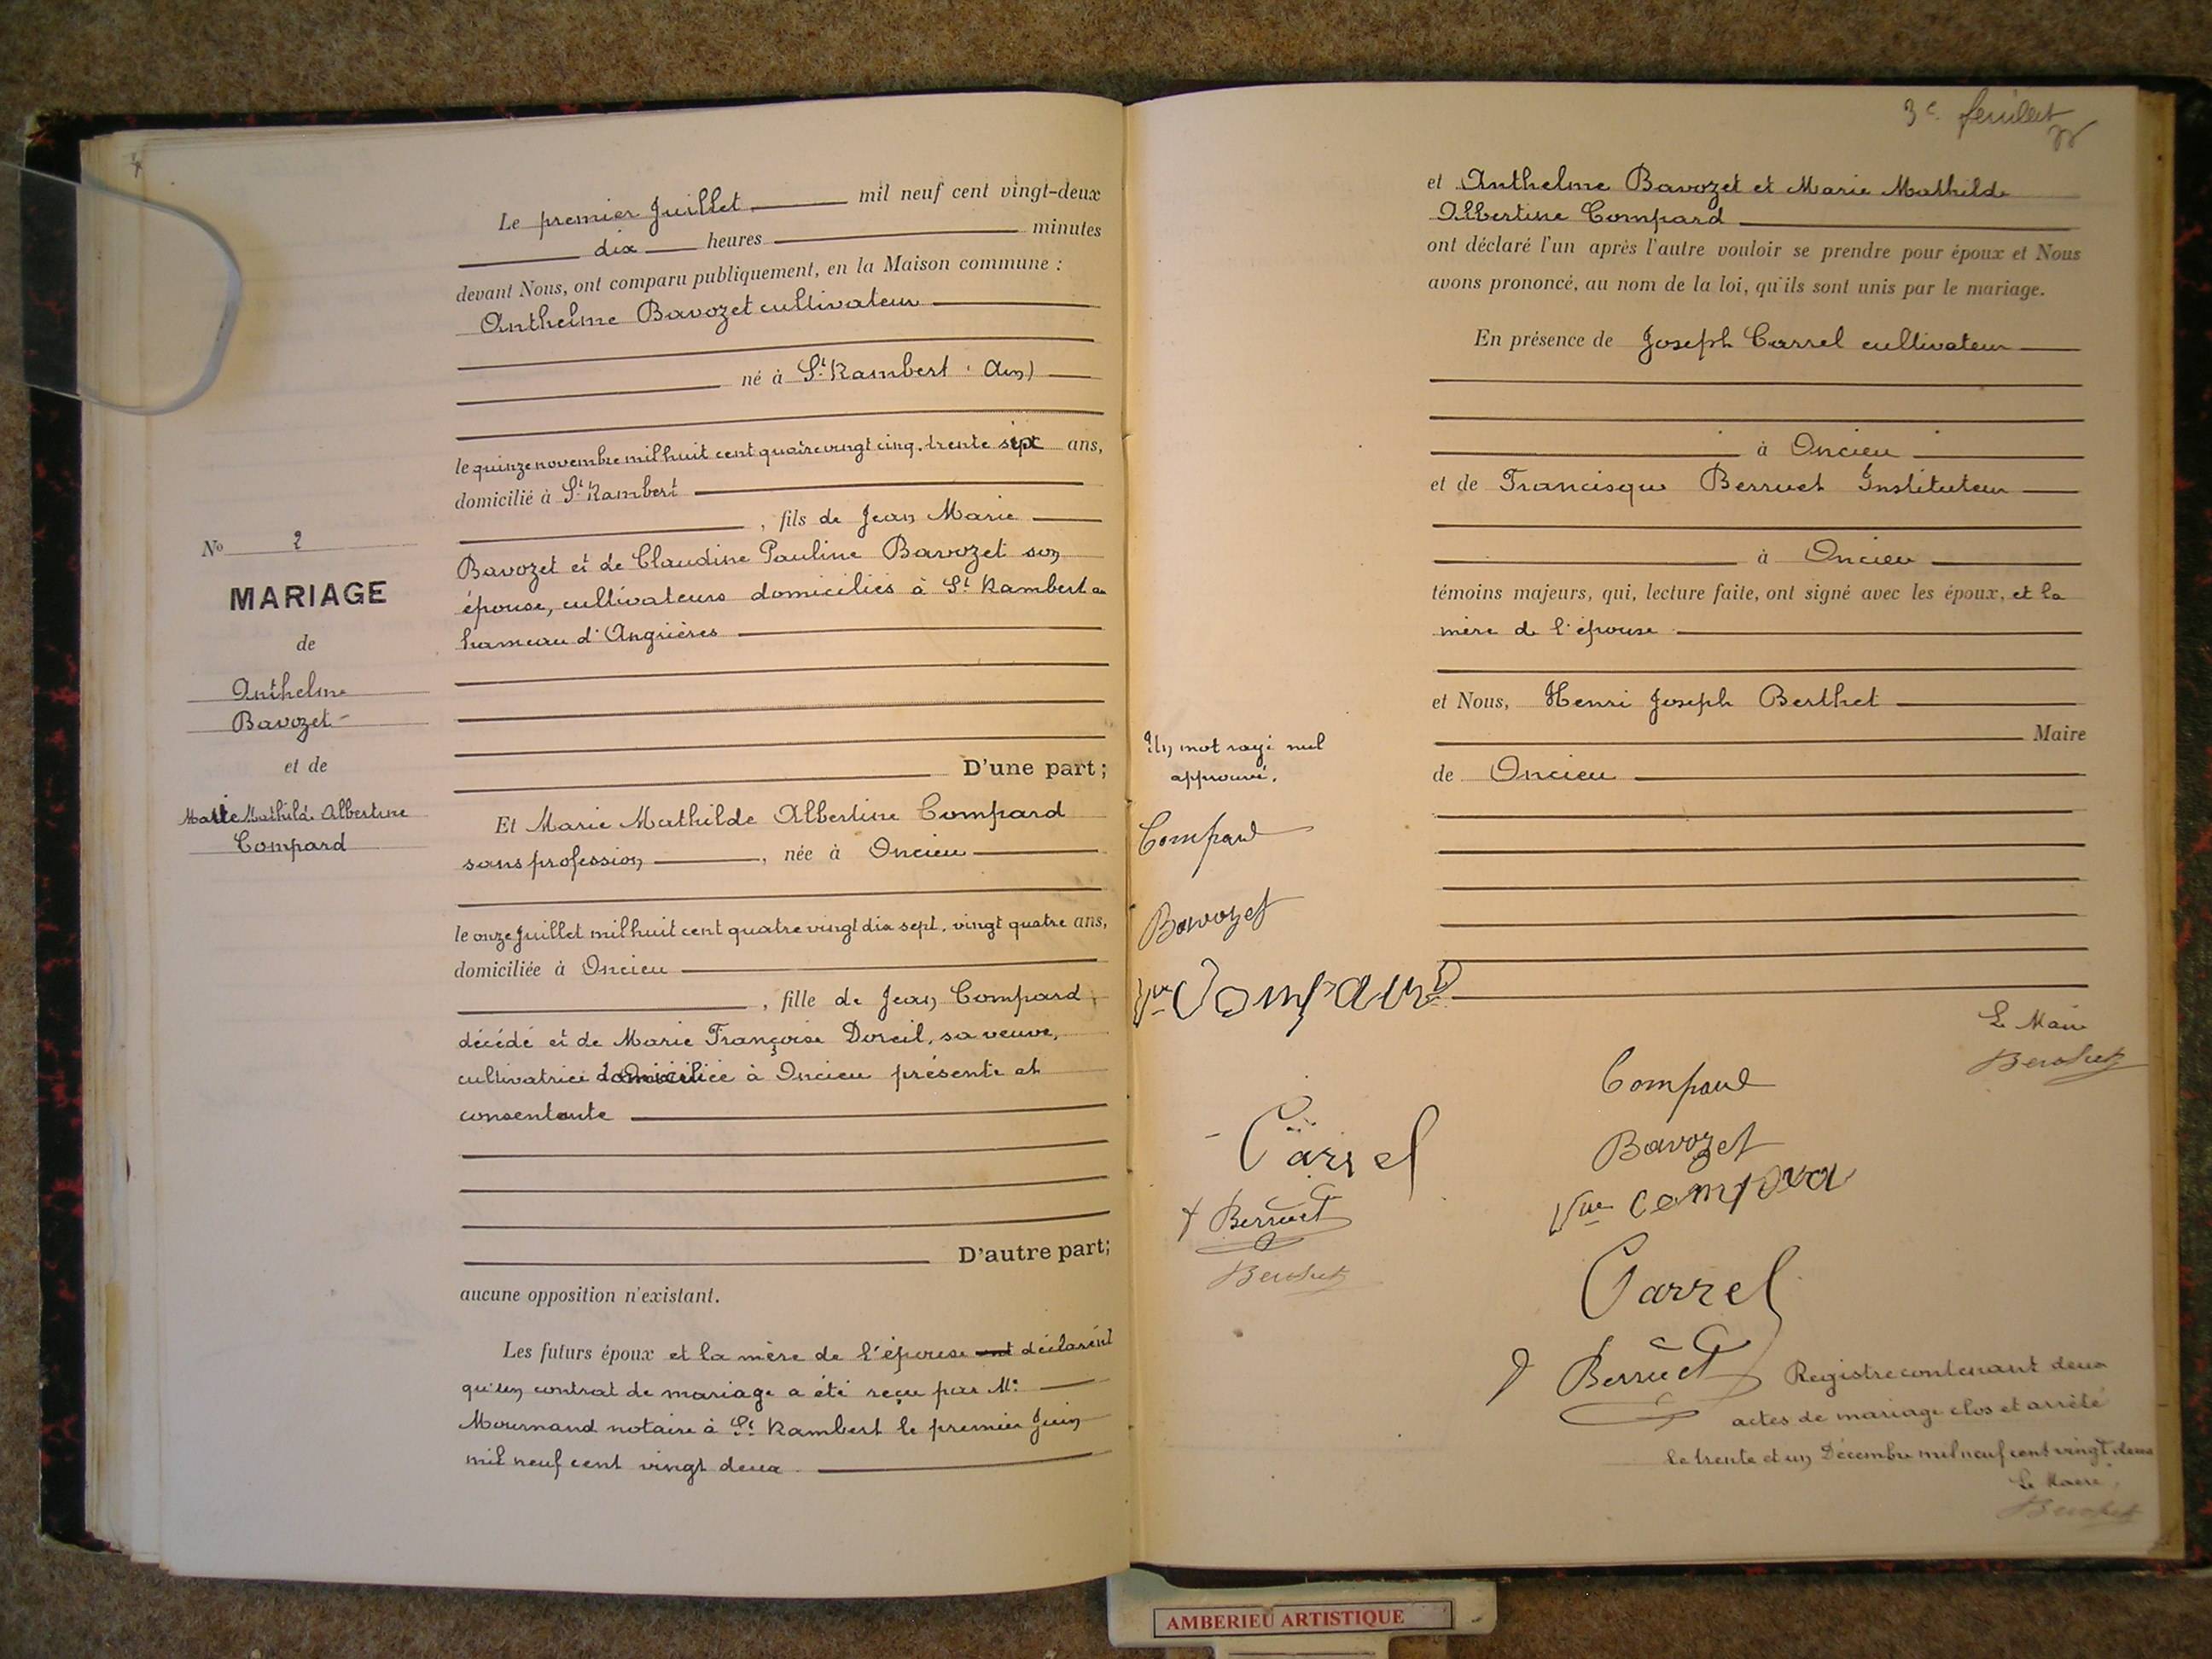 Le premier Juillet mil neuf cent vingt-deux
dix heures minutes
devant Nous, ont comparu publiquement, en la Maison commune :
Anthelme Bavozet cultivateur
né à St Rambert (Ain)
le quinze novembre mil huit cent quatre vingt cinq, trente ans,
domicilié à St Rambert
, fils de Jean Marie
Bavozet et de Claudine Pauline Bavozet son
épouse, cultivateurs domiciliés à St Rambert au
hameau d'Angrières
D'une part;
Et Marie Mathilde Albertine Compard
sans profession, née à Oncieu
le onze Juillet mil huit cent quatre vingt dix sept, vingt quatre ans,
domiciliée à Oncieu
, fille de Jean Compard,
décédé et de Marie Françoise Doreil, sa veuve,
cultivatrice domiciliée à Oncieu présente et
consentante
D'autre part;
aucune opposition n'existant.
Les futurs époux et la mère de l'épouse ont déclarent
qu'un contrat de mariage a été reçu par Me
Mournand notaire à St Rambert le premier Juin
mil neuf cent vingt deux
No 2
MARIAGE
de
Anthelme
Bavozet
et de
Marie Mathilde Albertine
Compard
3e feuillet
et Anthelme Bavozet et Marie Mathilde
Albertine Compard
ont déclaré l'un après l'autre vouloir se prendre pour époux et Nous
avons prononcé, au nom de la loi, qu'ils sont unis par le mariage.
En présence de Joseph Carrel cultivateur
à Oncieu
et de Francisque Berruet Instituteur
à Oncieu
témoins majeurs, qui, lecture faite, ont signé avec les époux, et la
mère de l'épouse
et Nous, Henri Joseph Berthet
Maire
de Oncieu
Un mot rayé nul
approuvé.
Compard
Bavozet
Vve Compard
Carrel
Berruet
Berthet
Le Maire
Berthet
Compard
Bavozet
Vve Compard
Carrel
Berruet
Registre contenant deux
actes de mariage clos et arrêté
le trente et un Décembre mil neuf cent vingt deux
Le Maire,
Berthet
AMBERIEU ARTISTIQUE